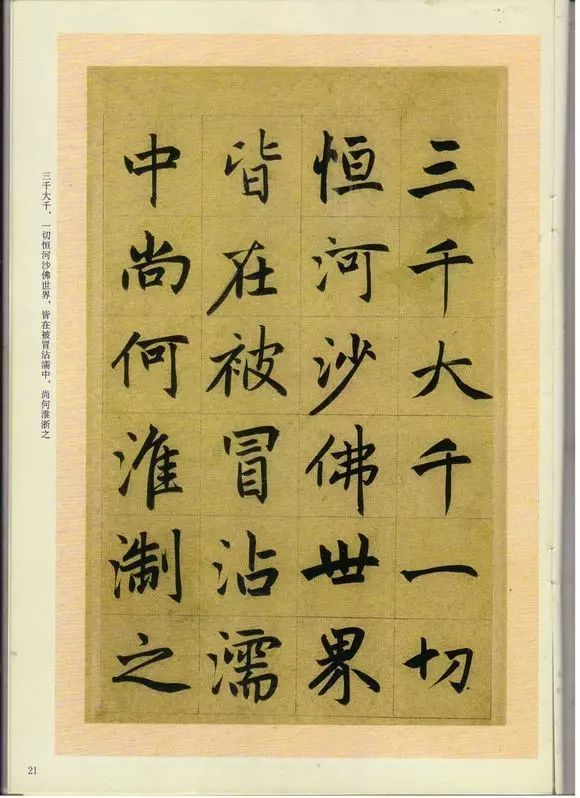 三千大千一切
恒河沙佛世界
皆在被冒沾濡
中尚何淮淛之
三千大千，一切恒河沙佛世界，皆在被冒沾濡中，尚何淮浙之
21